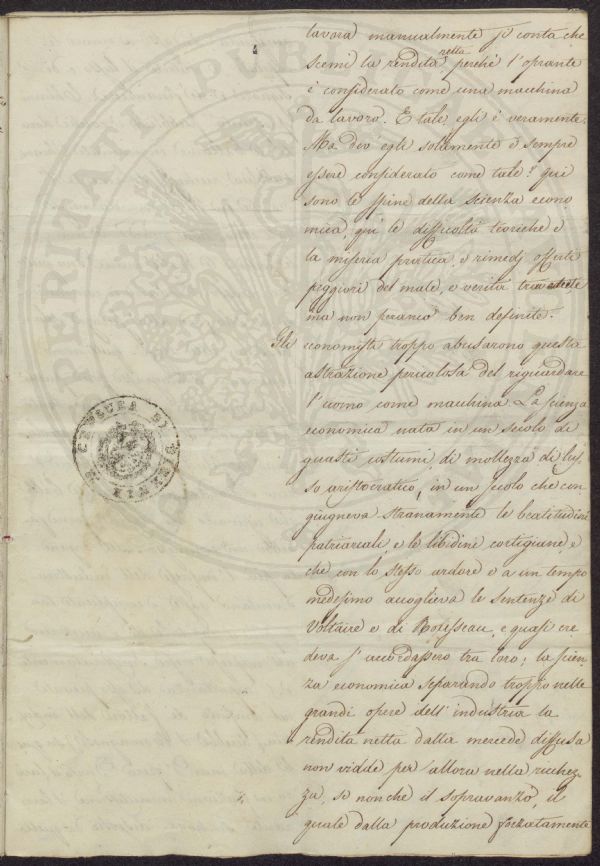 lavora manualmente si conta che
scemi la rendita netta perchè l'oprante
è considerato come una macchina
da lavoro. E tale egli è veramente.
Ma dev'egli solamente e sempre
essere considerato come tale? qui
sono le spine della scienza econo
mica, qui le difficoltà teoriche e
la miseria pratica, e rimedj offerti
peggiori del male, o verità
ma non peranco ben definite.
Gli economisti troppo abusarono questa
astrazione pericolosa del riguardare
l'uomo come macchina La scienza
economica nata in un secolo di
guasti costumi, di mollezza di lus
so aristocratico, in un secolo che con
giugneva stranamente le beatitudini
patriarcali, e le libidini cortigiane, e
che con lo stesso ardore e a un tempo
medesimo accoglieva le sentenze di
Voltaire e di Rousseau, e quasi cre
deva s'accordassero tra loro; la scien
za economica separando troppo nelle
grandi opere dell'industria la
rendita netta dalla mercede diffusa
non vidde per allora nella ricchez
za, se non che il sopravanzo, il
quale dalla produzione forzatamente
CENSURA DI VENEZIA